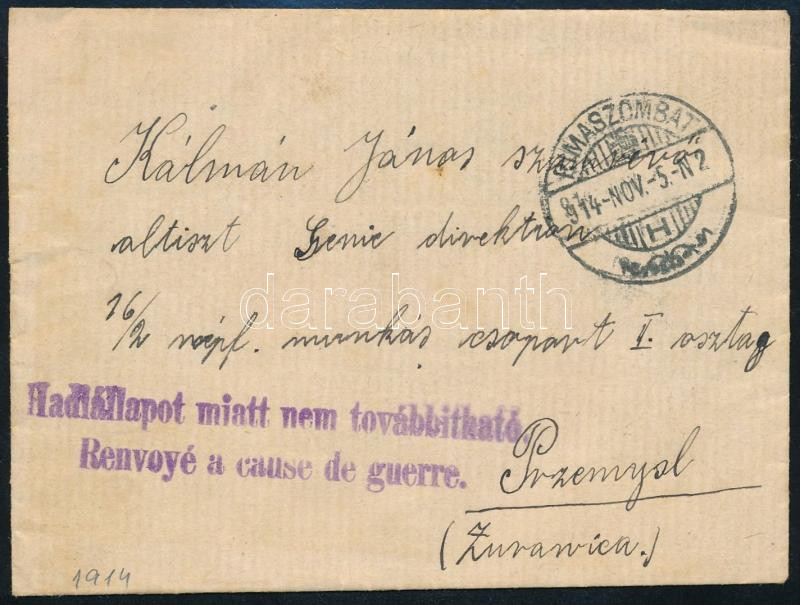 RIMASZOMBAT
914-NOV.-5.-N2
H
Kálmán János
altiszt Genie direktion
darabanth
16/2 népf. munkás csoport I. osztag
Hadiállapot miatt nem továbbitható.
Renvoyé a cause de guerre.
Przemysl
(Zurawica.)
1914